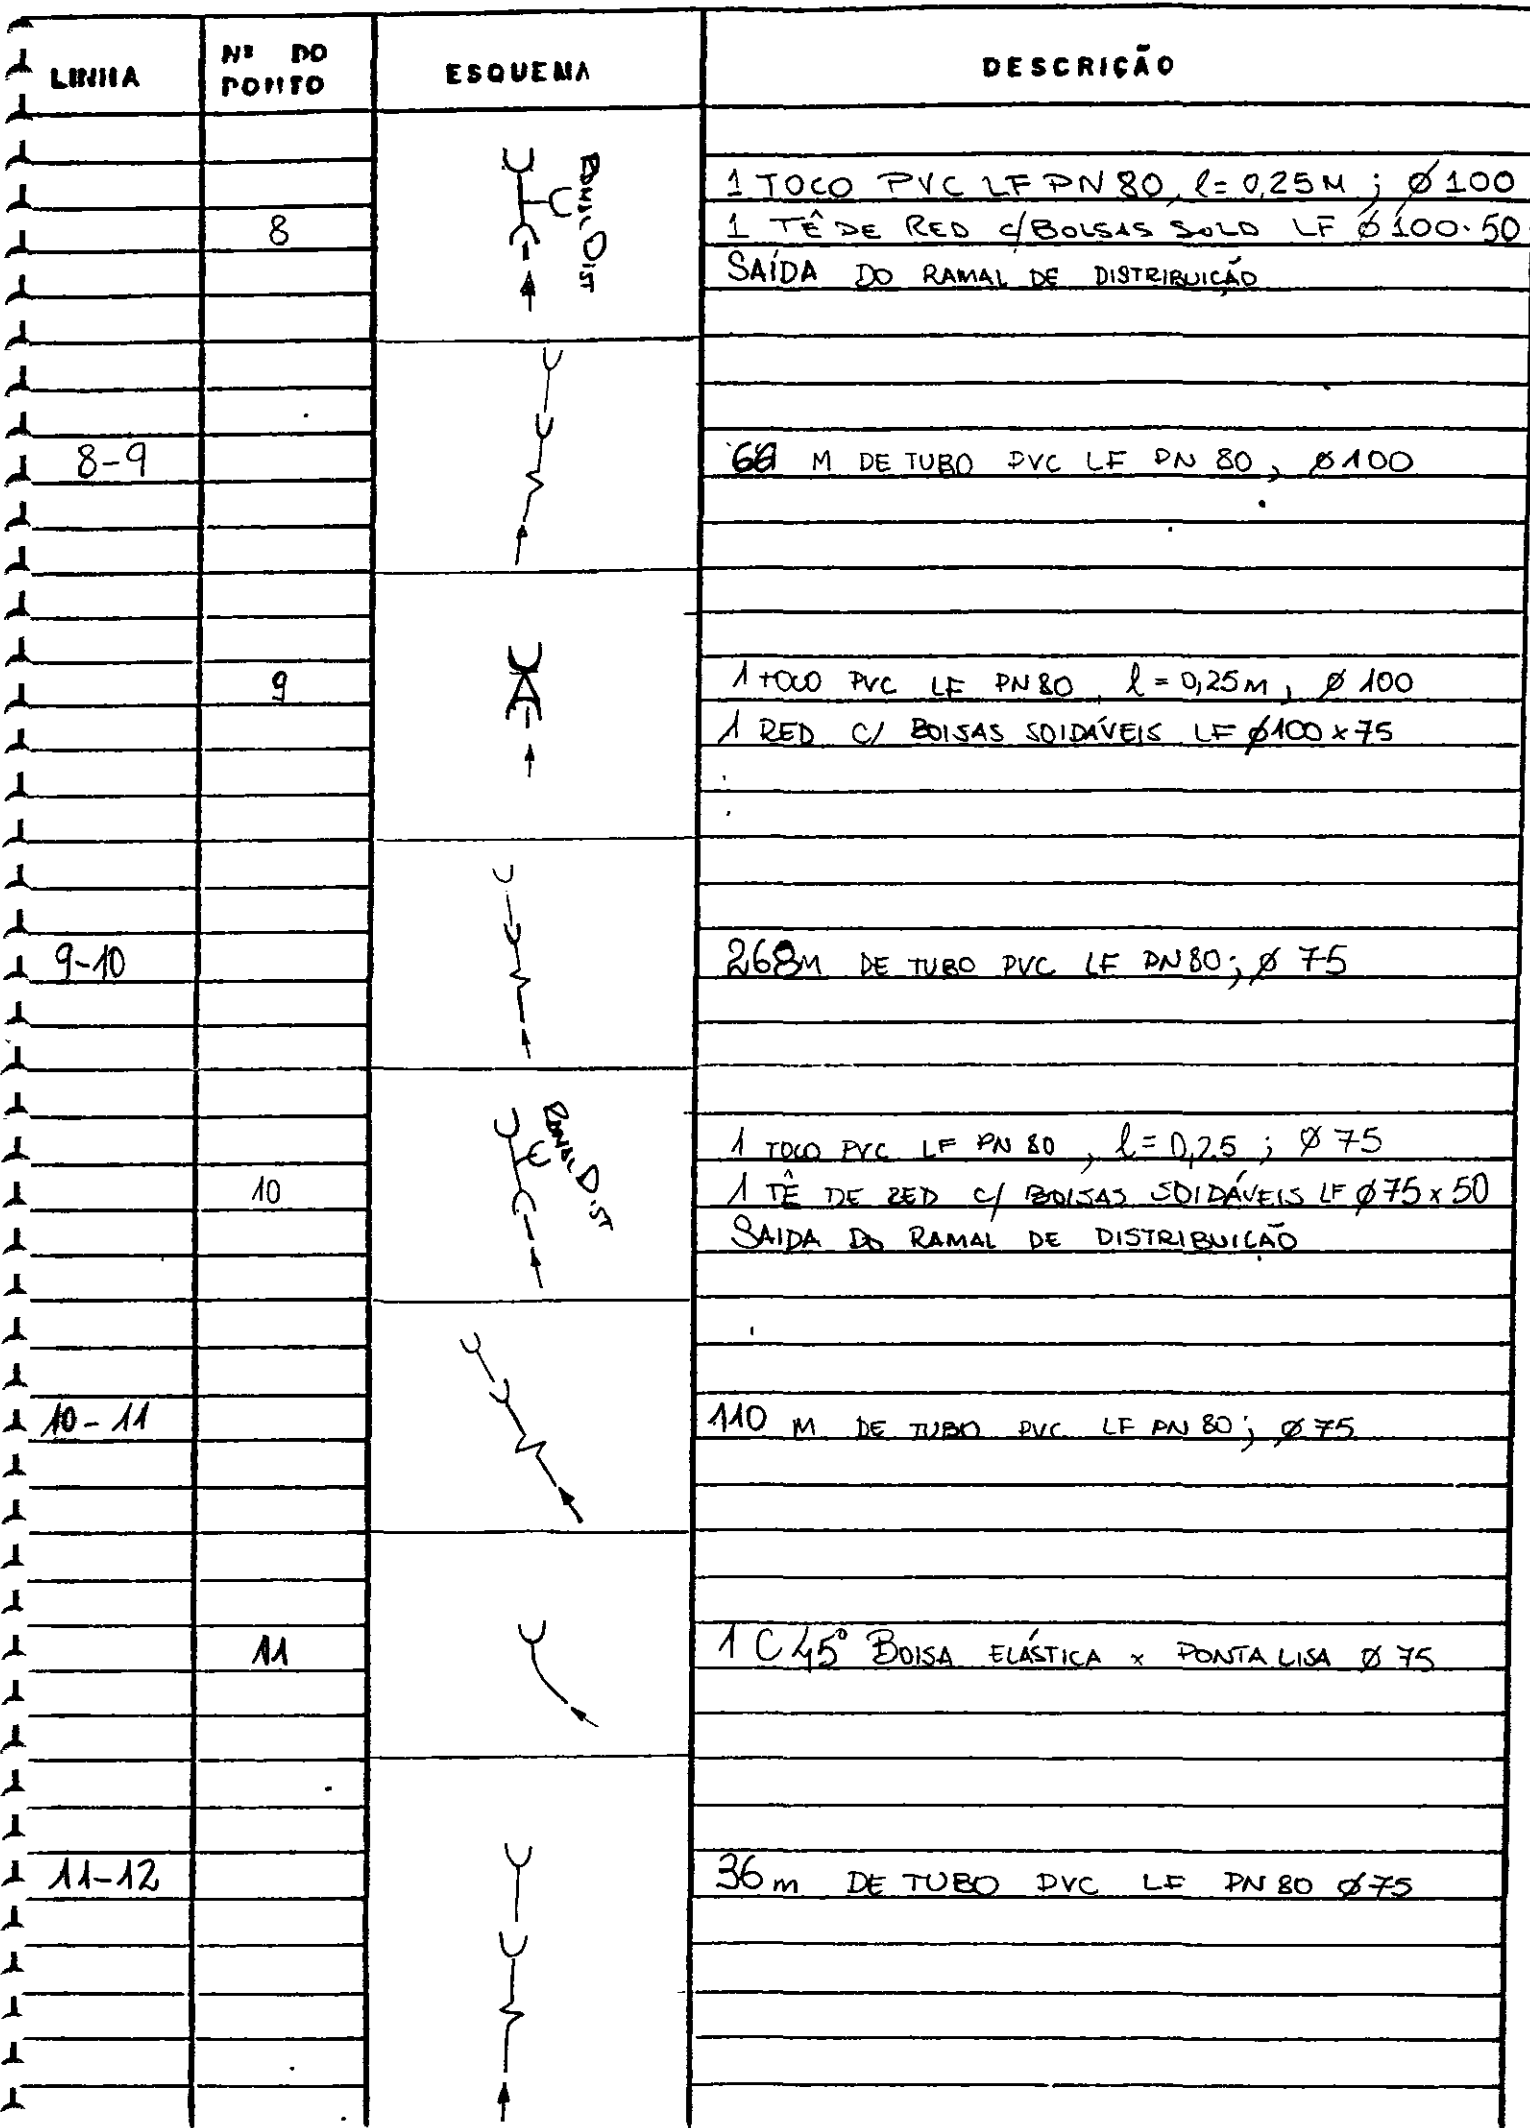 LINHA
Nº DO PONTO
ESQUEMA
DESCRIÇÃO
8
RAMAL DIST
1 TOCO PVC LF PN 80, l= 0,25M ; Ø 100
1 TÊ DE RED c/BOLSAS SOLD LF Ø 100.50
SAÍDA DO RAMAL DE DISTRIBUIÇÃO
8-9
M DE TUBO PVC LF PN 80, Ø 100
9
1 TOCO PVC LF PN 80, l = 0,25M, Ø 100
1 RED C/ BOLSAS SOLDÁVEIS LF Ø100 x 75
9-10
268M DE TUBO PVC LF PN 80; Ø 75
10
RAMAL DIST
1 TOCO PVC LF PN 80, l = 0,25 ; Ø 75
1 TÊ DE RED c/ BOLSAS SOLDÁVEIS LF Ø 75 x 50
SAIDA DO RAMAL DE DISTRIBUIÇÃO
10-11
110 M DE TUBO PVC LF PN 80; Ø 75
11
1 C 45° BOLSA ELÁSTICA x PONTA LISA Ø 75
11-12
36 m DE TUBO PVC LF PN 80 Ø 75